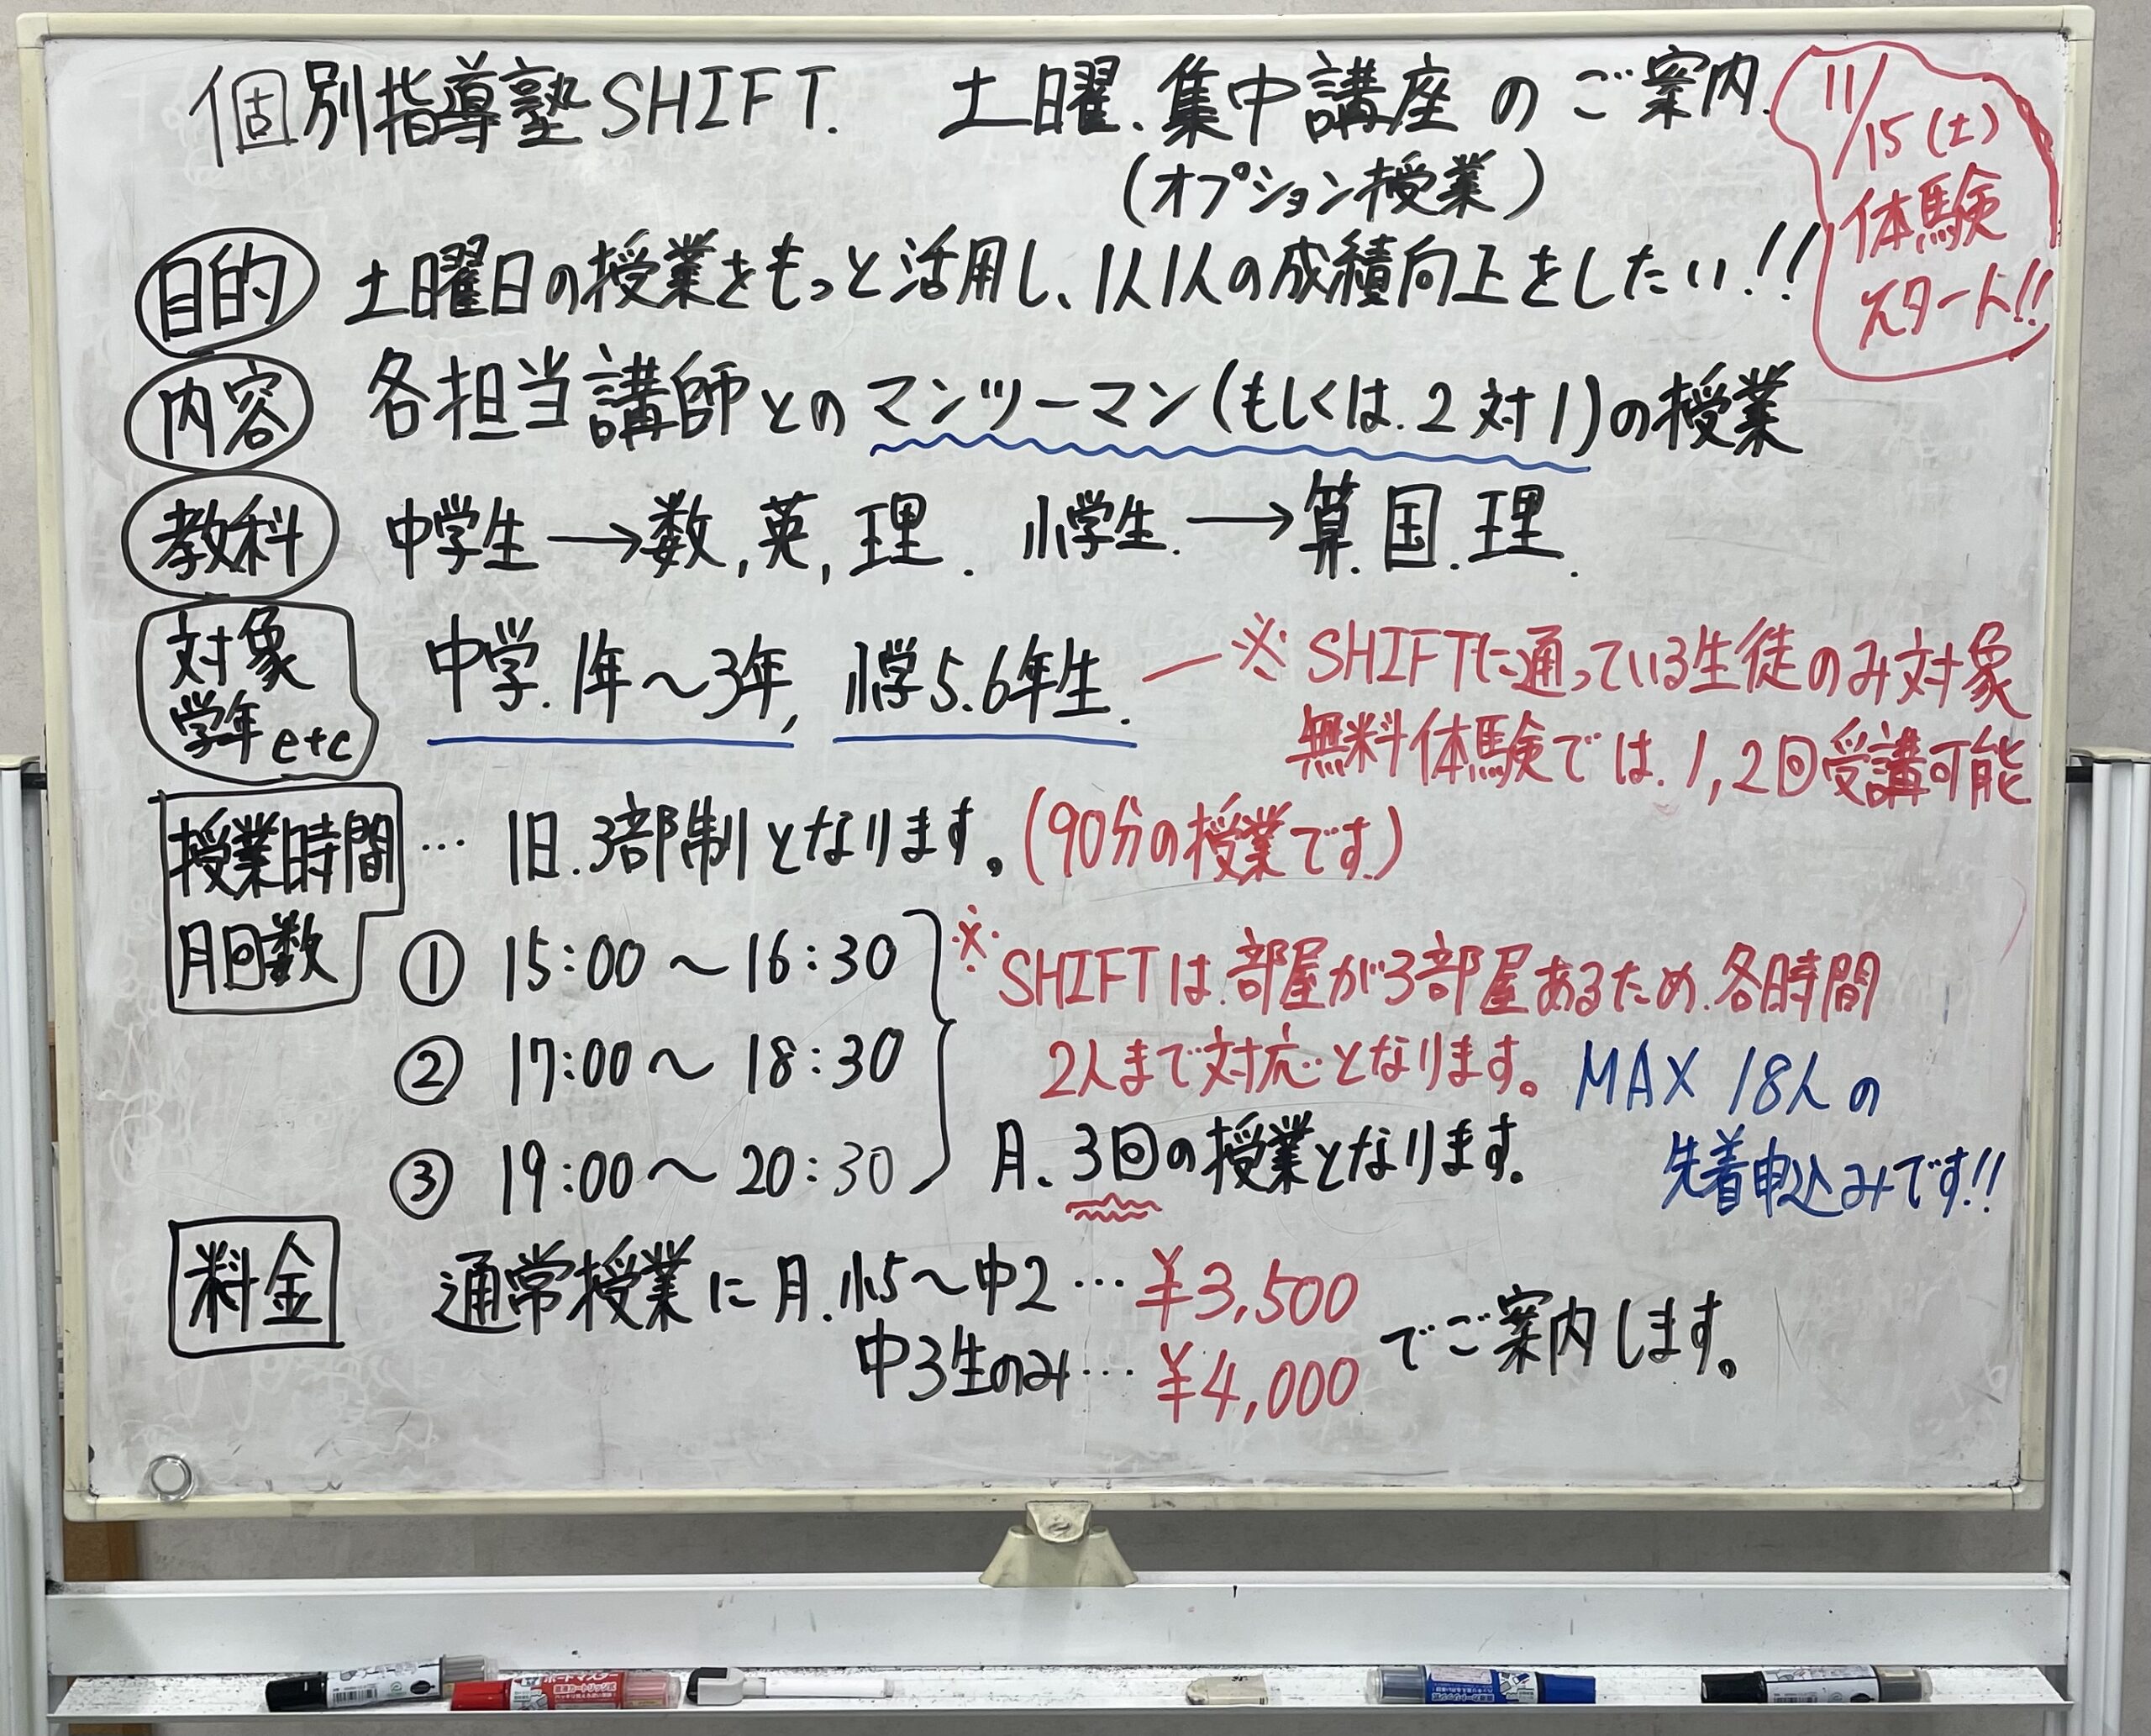 個別指導塾SHIFT. 土曜.集中講座のご案内.
(オプション授業)
11/15(土)
体験
スタート!!
目的 土曜日の授業をもっと活用し、1人1人の成績向上をしたい!!
内容 各担当講師とのマンツーマン(もしくは.2対1)の授業
教科 中学生→数,英,理. 小学生.→算.国.理.
対象
学年etc
中学.1年〜3年, 小学5.6年生.
※SHIFTに通っている生徒のみ対象
無料体験では.1,2回受講可能
授業時間
月回数
… 1日.3部制となります。(90分の授業です)
① 15:00〜16:30
② 17:00〜18:30
③ 19:00〜20:30
※SHIFTは.部屋が3部屋あるため.各時間
2人まで対応となります。
MAX 18人の
先着申込みです!!
月、3回の授業となります。
料金 通常授業に月.小5〜中2…¥3,500
中3生のみ…¥4,000
でご案内します。
ボードマスター